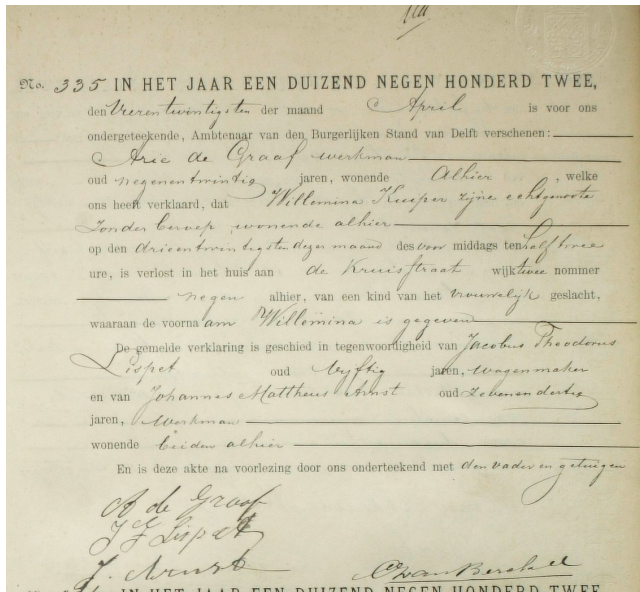 No. 335 IN HET JAAR EEN DUIZEND NEGEN HONDERD TWEE,
den Vierentwintigsten der maand April is voor ons
ondergeteekende, Ambtenaar van den Burgerlijken Stand van Delft verschenen:
Arie de Graaf werkman
oud negenentwintig jaren, wonende Alhier, welke
ons heeft verklaard, dat Willemina Kuiper zijne echtgenoote
Zonder beroep wonende alhier
op den drieentwintigsten dezer maand des voor middags ten half twee
ure, is verlost in het huis aan de Kruisstraat wijk twee nommer
negen alhier, van een kind van het vrouwelijk geslacht,
waaraan de voornaam Willemina is gegeven
De gemelde verklaring is geschied in tegenwoordigheid van Jacobus Theodorus
Lispet oud Vijftig jaren, wagenmaker
en van Johannes Mattheus Arnst oud zevenendertig
jaren, werkman
wonende beiden alhier
En is deze akte na voorlezing door ons onderteekend met den vader en getuigen
A de Graaf
J T Lispet
J. Arnst
IN HET JAAR EEN DUIZEND NEGEN HONDERD TWEE